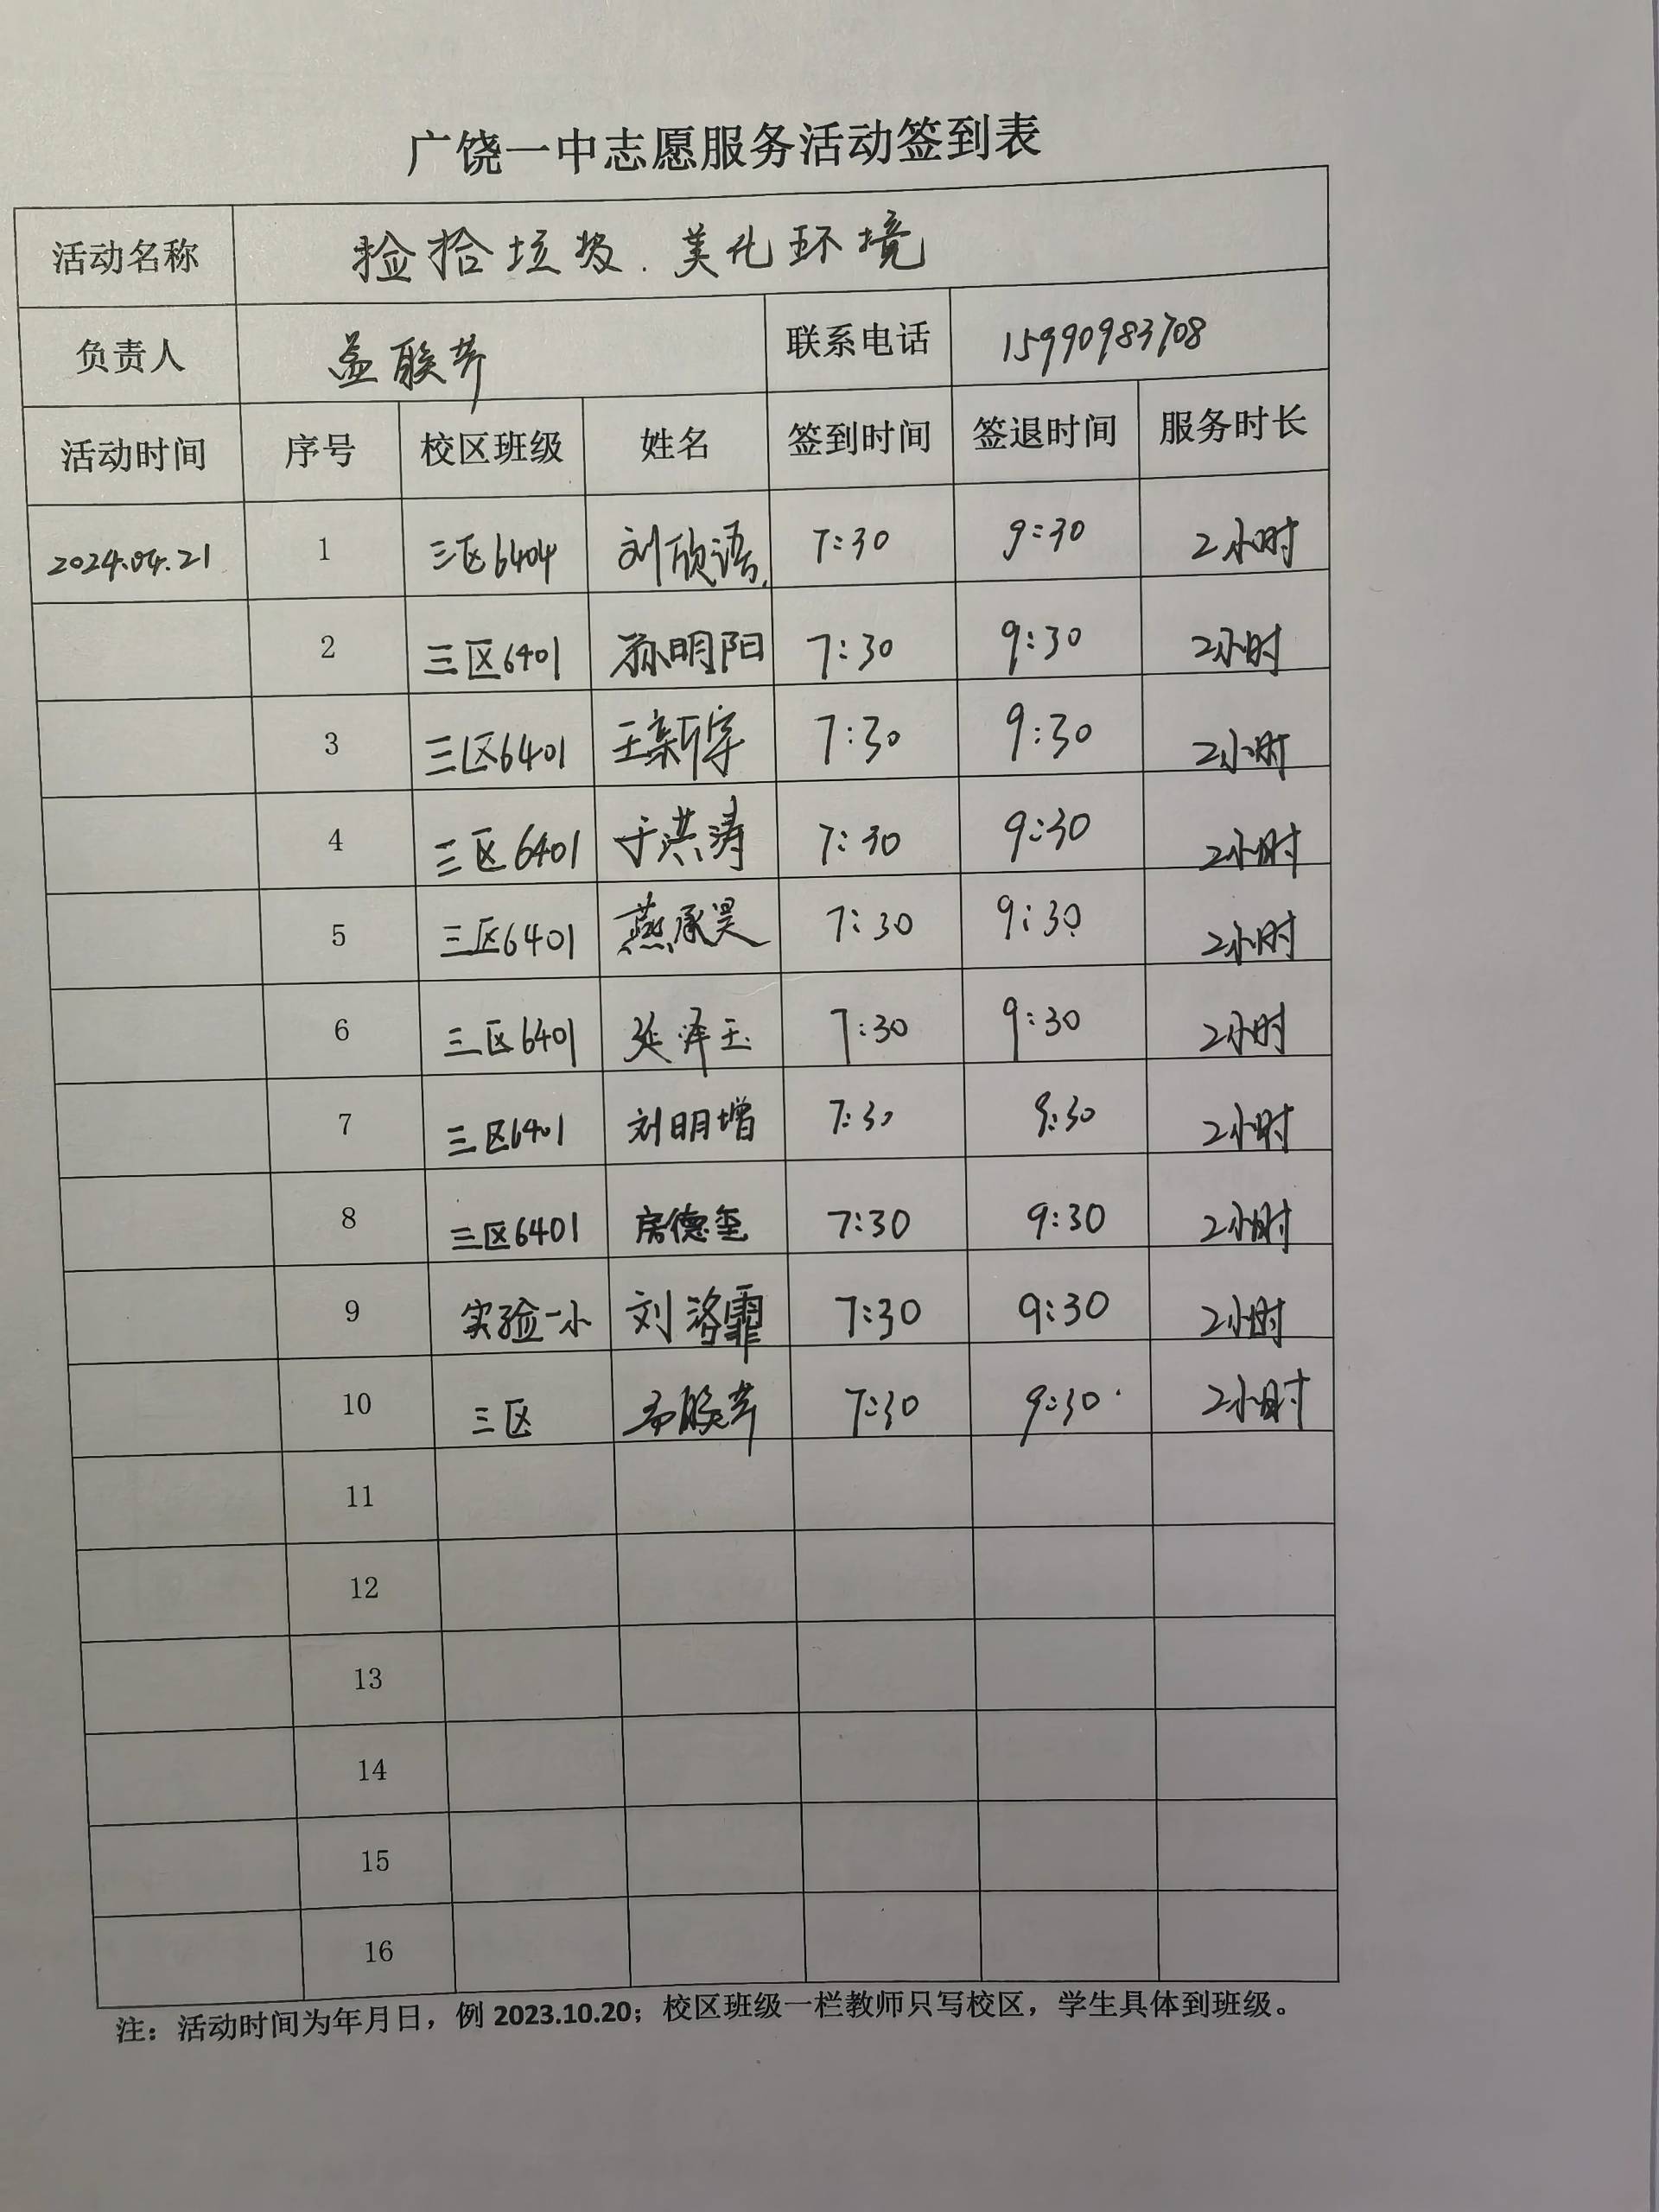 广饶一中志愿服务活动签到表
活动名称 捡拾垃圾.美化环境
负责人 联系电话 15990983708
活动时间 序号 校区班级 姓名 签到时间 签退时间 服务时长
2024.04.21 1 三区6404 刘欣语 7:30 9:30 2小时
2 三区6401 孙明阳 7:30 9:30 2小时
3 三区6401 王新宇 7:30 9:30 2小时
4 三区6401 于洪涛 7:30 9:30 2小时
5 三区6401 燕承昊 7:30 9:30 2小时
6 三区6401 延泽玉 7:30 9:30 2小时
7 三区6401 刘明增 7:30 9:30 2小时
8 三区6401 房德玺 7:30 9:30 2小时
9 实验一小 刘洛霏 7:30 9:30 2小时
10 三区 7:30 9:30 2小时
11
12
13
14
15
16
注：活动时间为年月日，例2023.10.20；校区班级一栏教师只写校区，学生具体到班级。